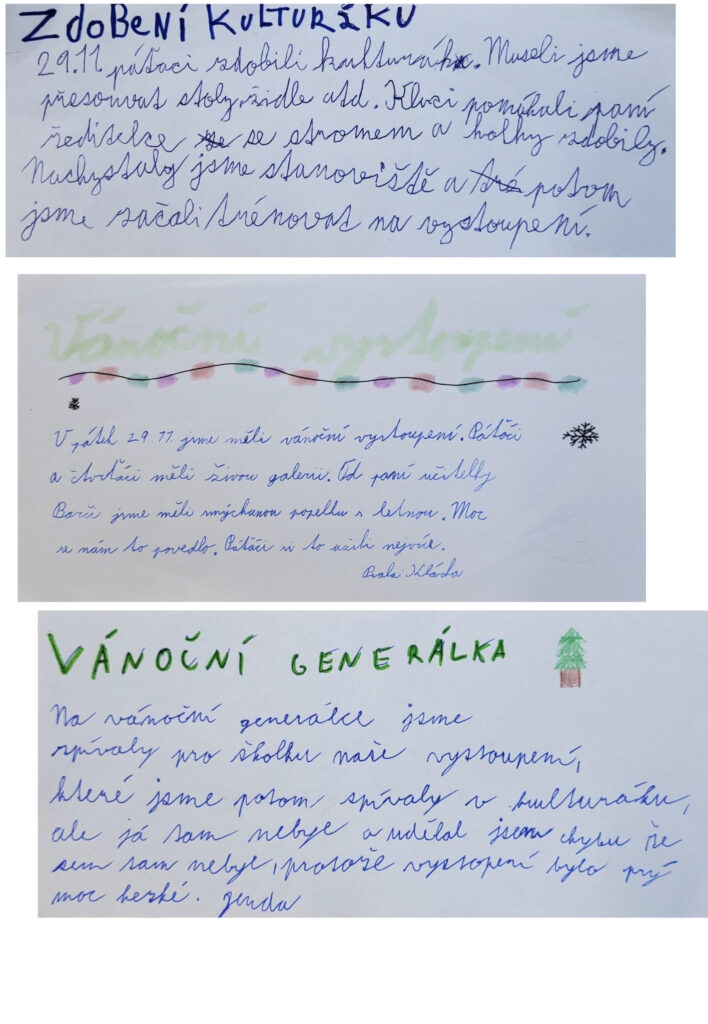 ZDOBENÍ KULTURÁKU
29.11. páťáci zdobili kulturák. Museli jsme
přesouvat stoly, židle atd. Kluci pomáhali paní
ředitelce se stromem a holky zdobily.
Nachystaly jsme stanoviště a potom
jsme začali trénovat na vystoupení.
Vánoční vystoupení
V pátek 29.11. jsme měli vánoční vystoupení. Páťáci
a čtvrťáci měli živou galerii. Od paní učitelky
Barči jsme měli smíchanou popelku s letnou. Moc
se nám to povedlo. Páťáci si to užili nejvíc.
Psala: Klárka
VÁNOČNÍ GENERÁLKA
Na vánoční generálce jsme
zpívaly pro školku naše vystoupení,
které jsme potom spívaly v kulturáku,
ale já tam nebyl a udělal jsem chybu že
sem tam nebyl, protože vystopení bylo prý
moc hezké. Jenda